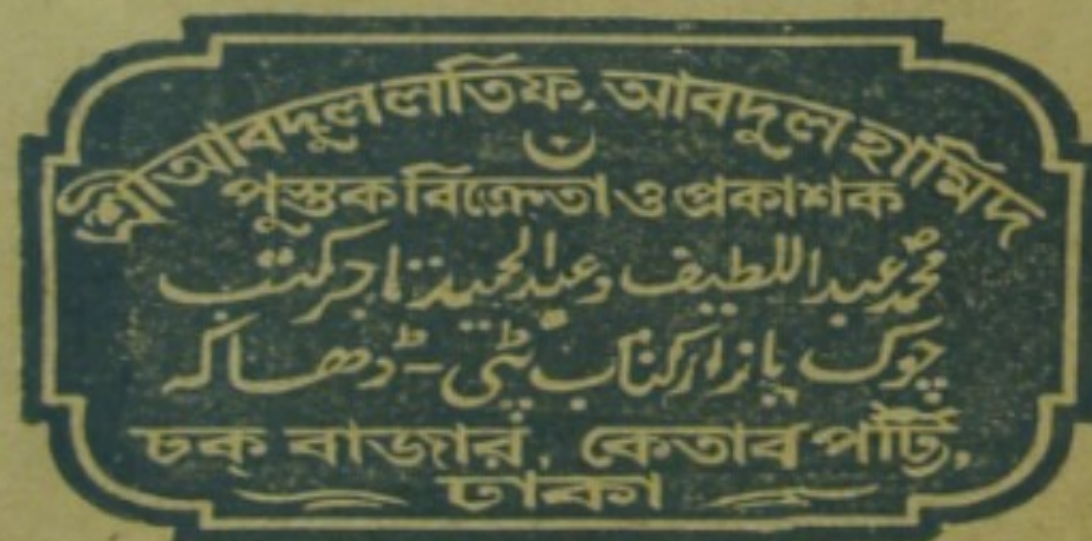 শ্রীআবদুল লতিফ, আবদুল হামিদ
পুস্তক বিক্রেতা ও প্রকাশক
محمد عبداللطیف وعبدالحمید تاجر کتب
چوک بازار کتاب پٹی - ڈھاکہ
চক্ বাজার, কেতাব পট্টি,
ঢাকা